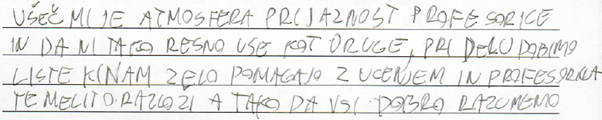 VŠEČ MI JE ATMOSFERA PRIJAZNOST PROFESORICE
IN DA NI TAKO RESNO VSE KOT DRUGE, PRI DELU DOBIMO
LISTE KI NAM ZELO POMAGAJO Z UCENJEM IN PROFESORICA
TEMELITO RAZLOŽI A TAKO DA VSI DOBRO RAZUMEMO